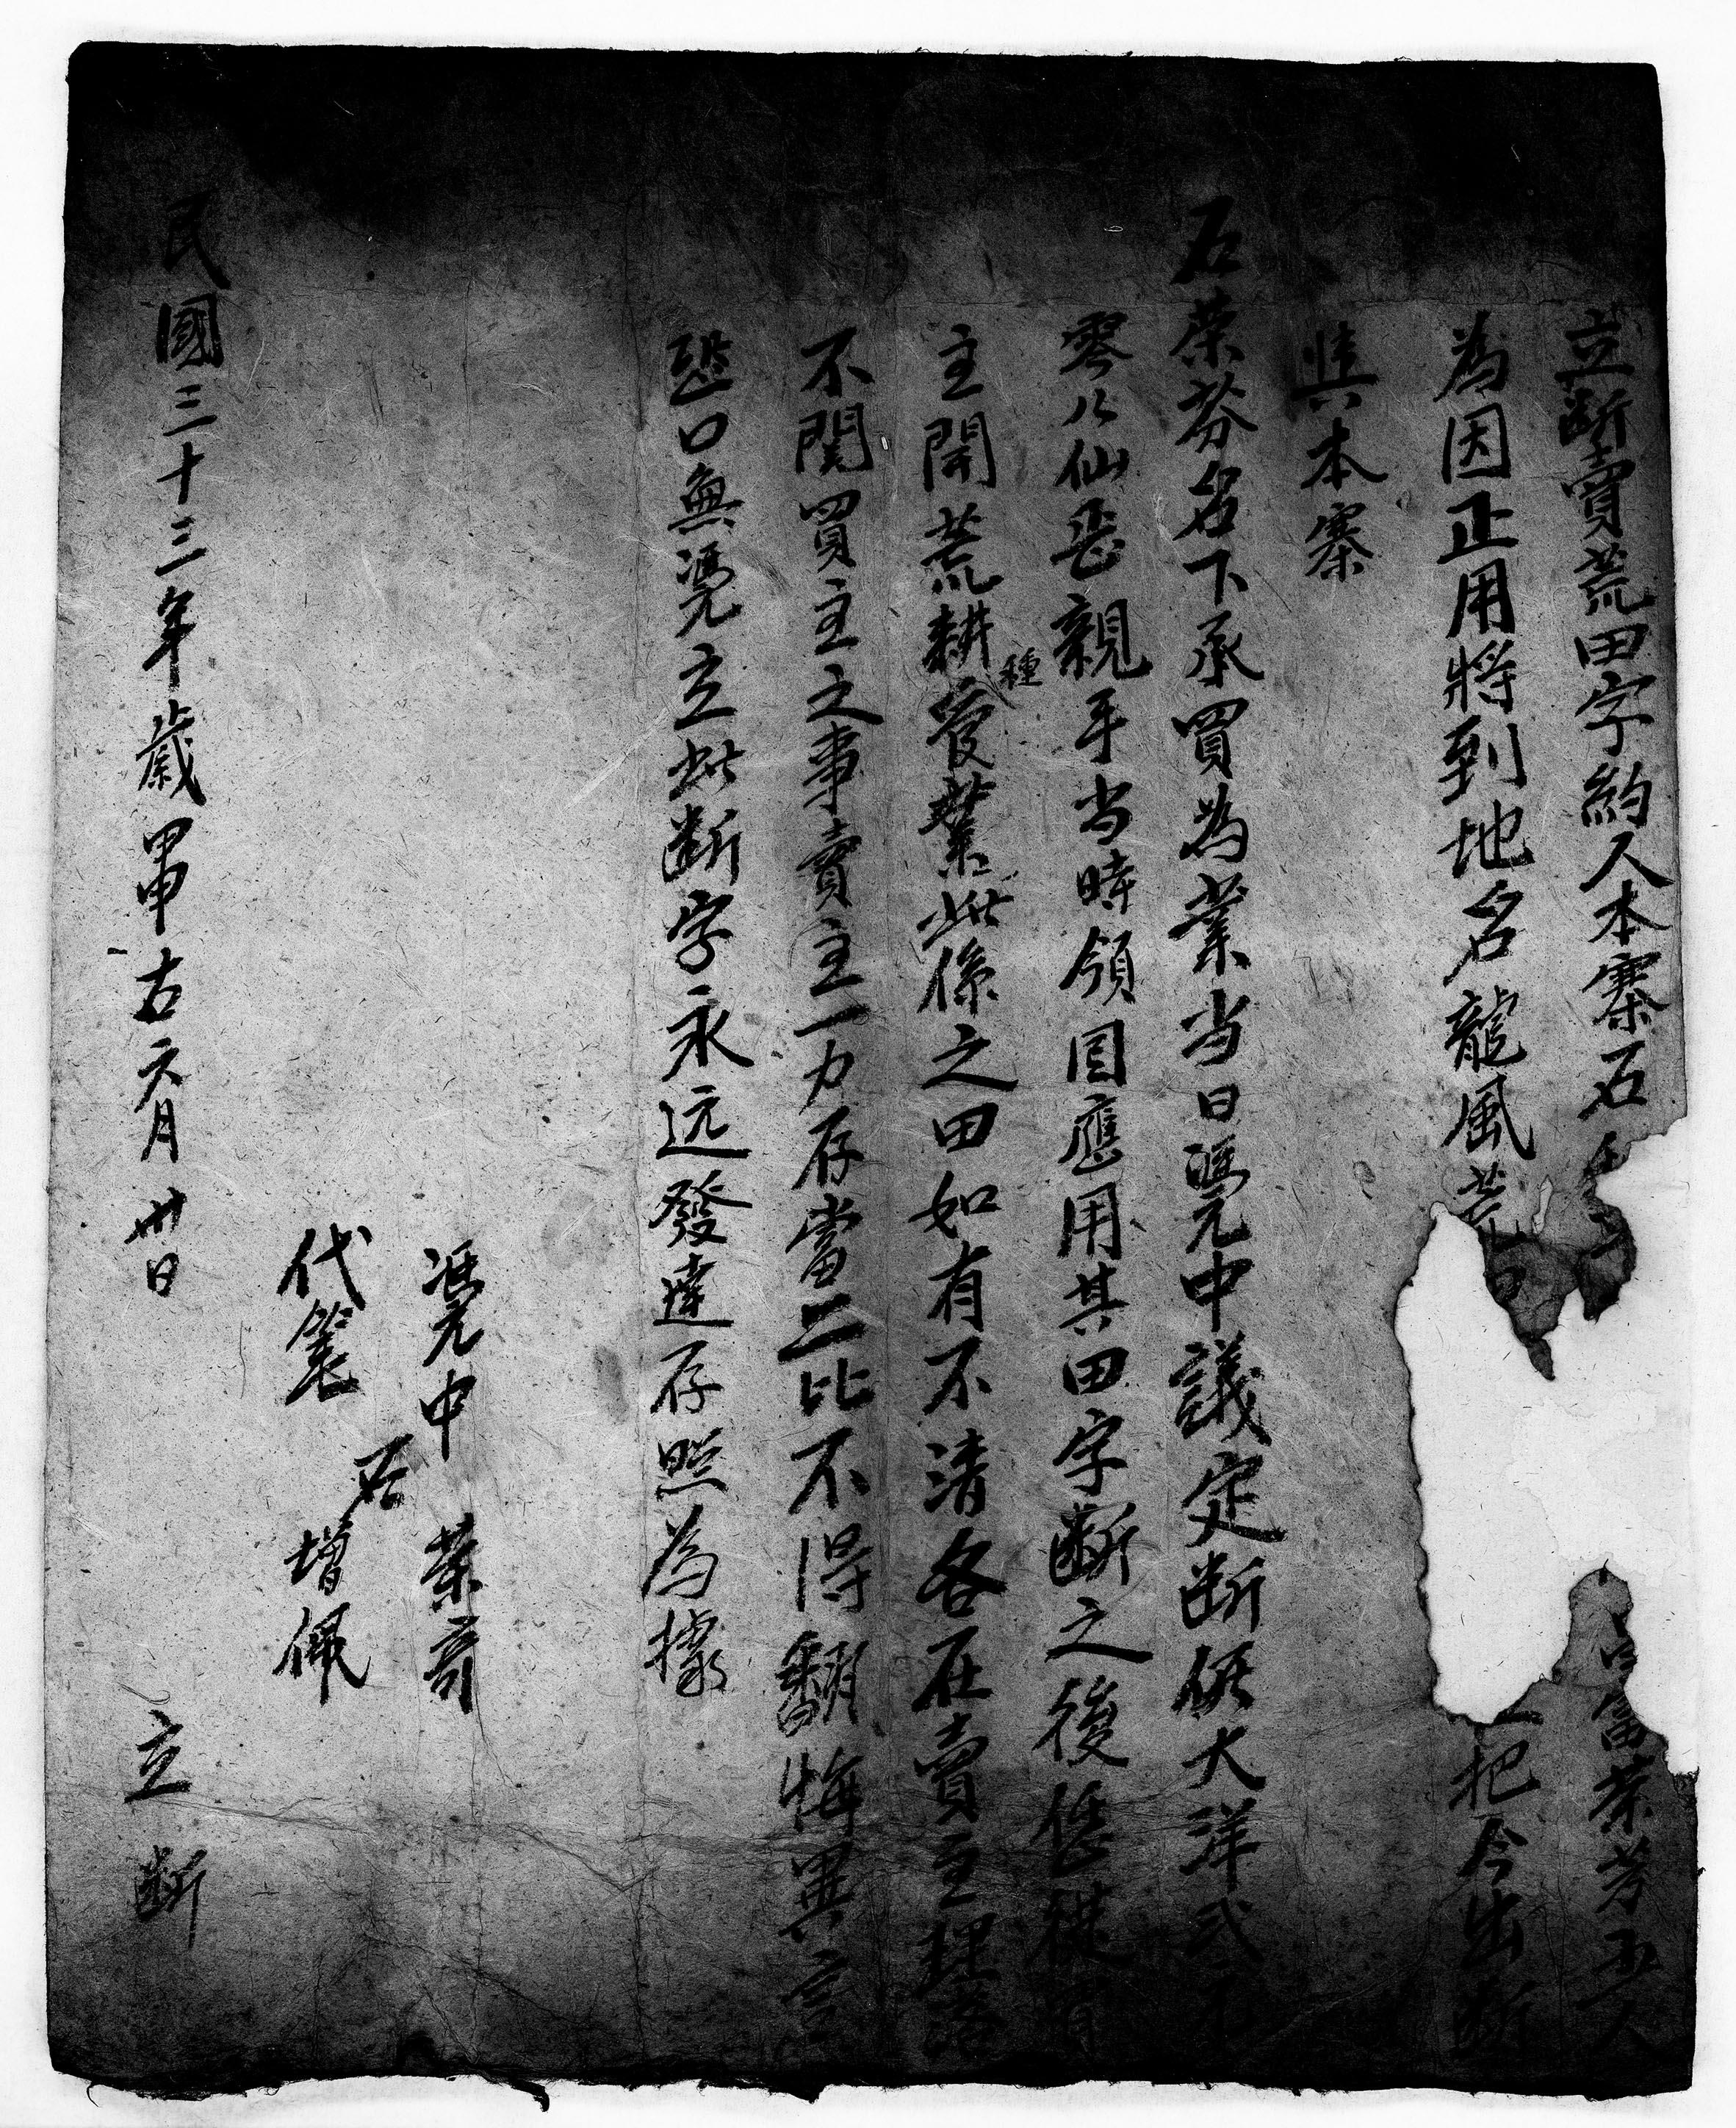 立断賣荒田字約人本寨石 富荣芳五人
為因正用將到地名龍凮荒 把今出断
與本寨
石荣芬名下承買為業当日凴中議定断價大洋弍元
零八仙岳親手当時領囬應用其田字断之後恁從買
主開荒耕種管業此係之田如有不清各在賣主理落
不関買主之事賣主一力存當二比不得翻悔異言
恐口無凴立此断字永远發達存照為據
凴中 石荣竒
代筆 石增佩
民國三十三年歲甲申古六月卅日 立断